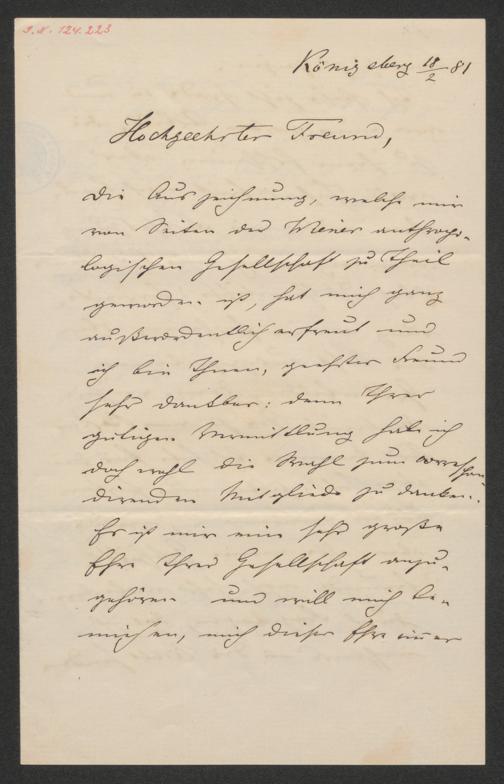 I.N. 124.223
Königsberg 18/2 81
Hochgeehrter Freund,
die Auszeichnung, welche mir
von Seiten der Wiener anthropo-
logischen Gesellschaft zu Theil
geworden ist, hat mich ganz
außerordentlich erfreut und
ich bin Ihnen, geehrter Freund
sehr dankbar: denn Ihrer
gütigen Vermittlung habe ich
doch wohl die Wahl zum correspon-
direnden Mitgliede zu danken.
Es ist mir eine sehr große
Ehre Ihrer Gesellschaft anzu-
gehören und will mich be-
mühen, mich dieser Ehre immer